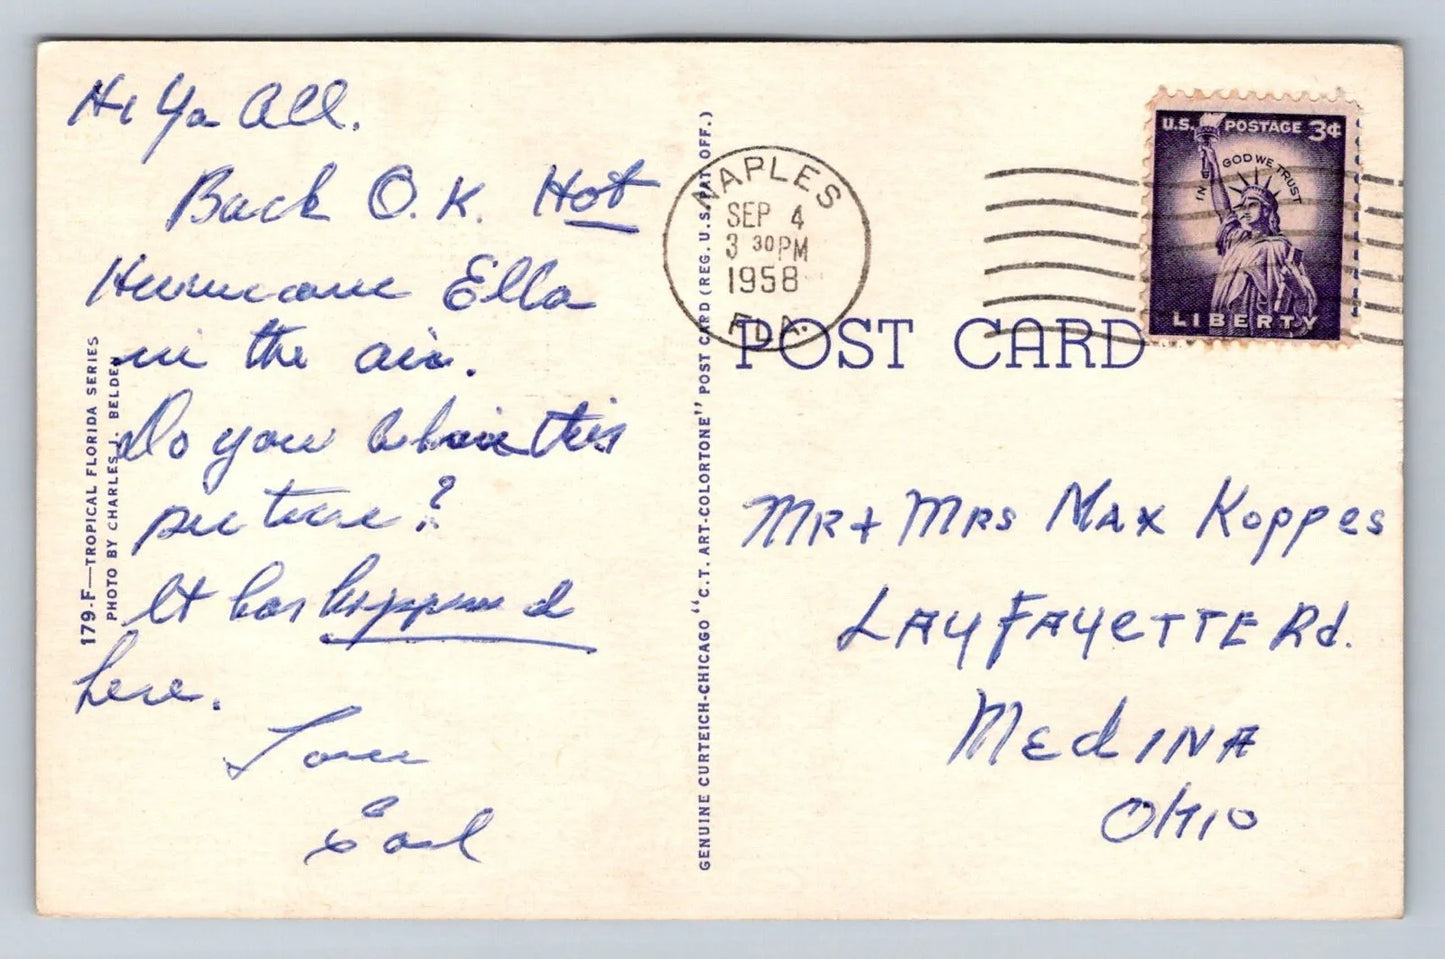 Hi Ya All.
Back O.K. Hot
Hurricane Ella
in the air.
Do you believe this
picture?
It has happened
here.
Love
Earl
179-F—TROPICAL FLORIDA SERIES
PHOTO BY CHARLES J. BELDEN
GENUINE CURTEICH-CHICAGO "C.T. ART-COLORTONE" POST CARD (REG. U.S. PAT. OFF.)
NAPLES
SEP 4
3 30 PM
1958
FLA.
U.S. POSTAGE 3¢
IN GOD WE TRUST
LIBERTY
POST CARD
MR + MRS MAX Koppes
LAYFAYETTE Rd.
MEdINA
OHIO